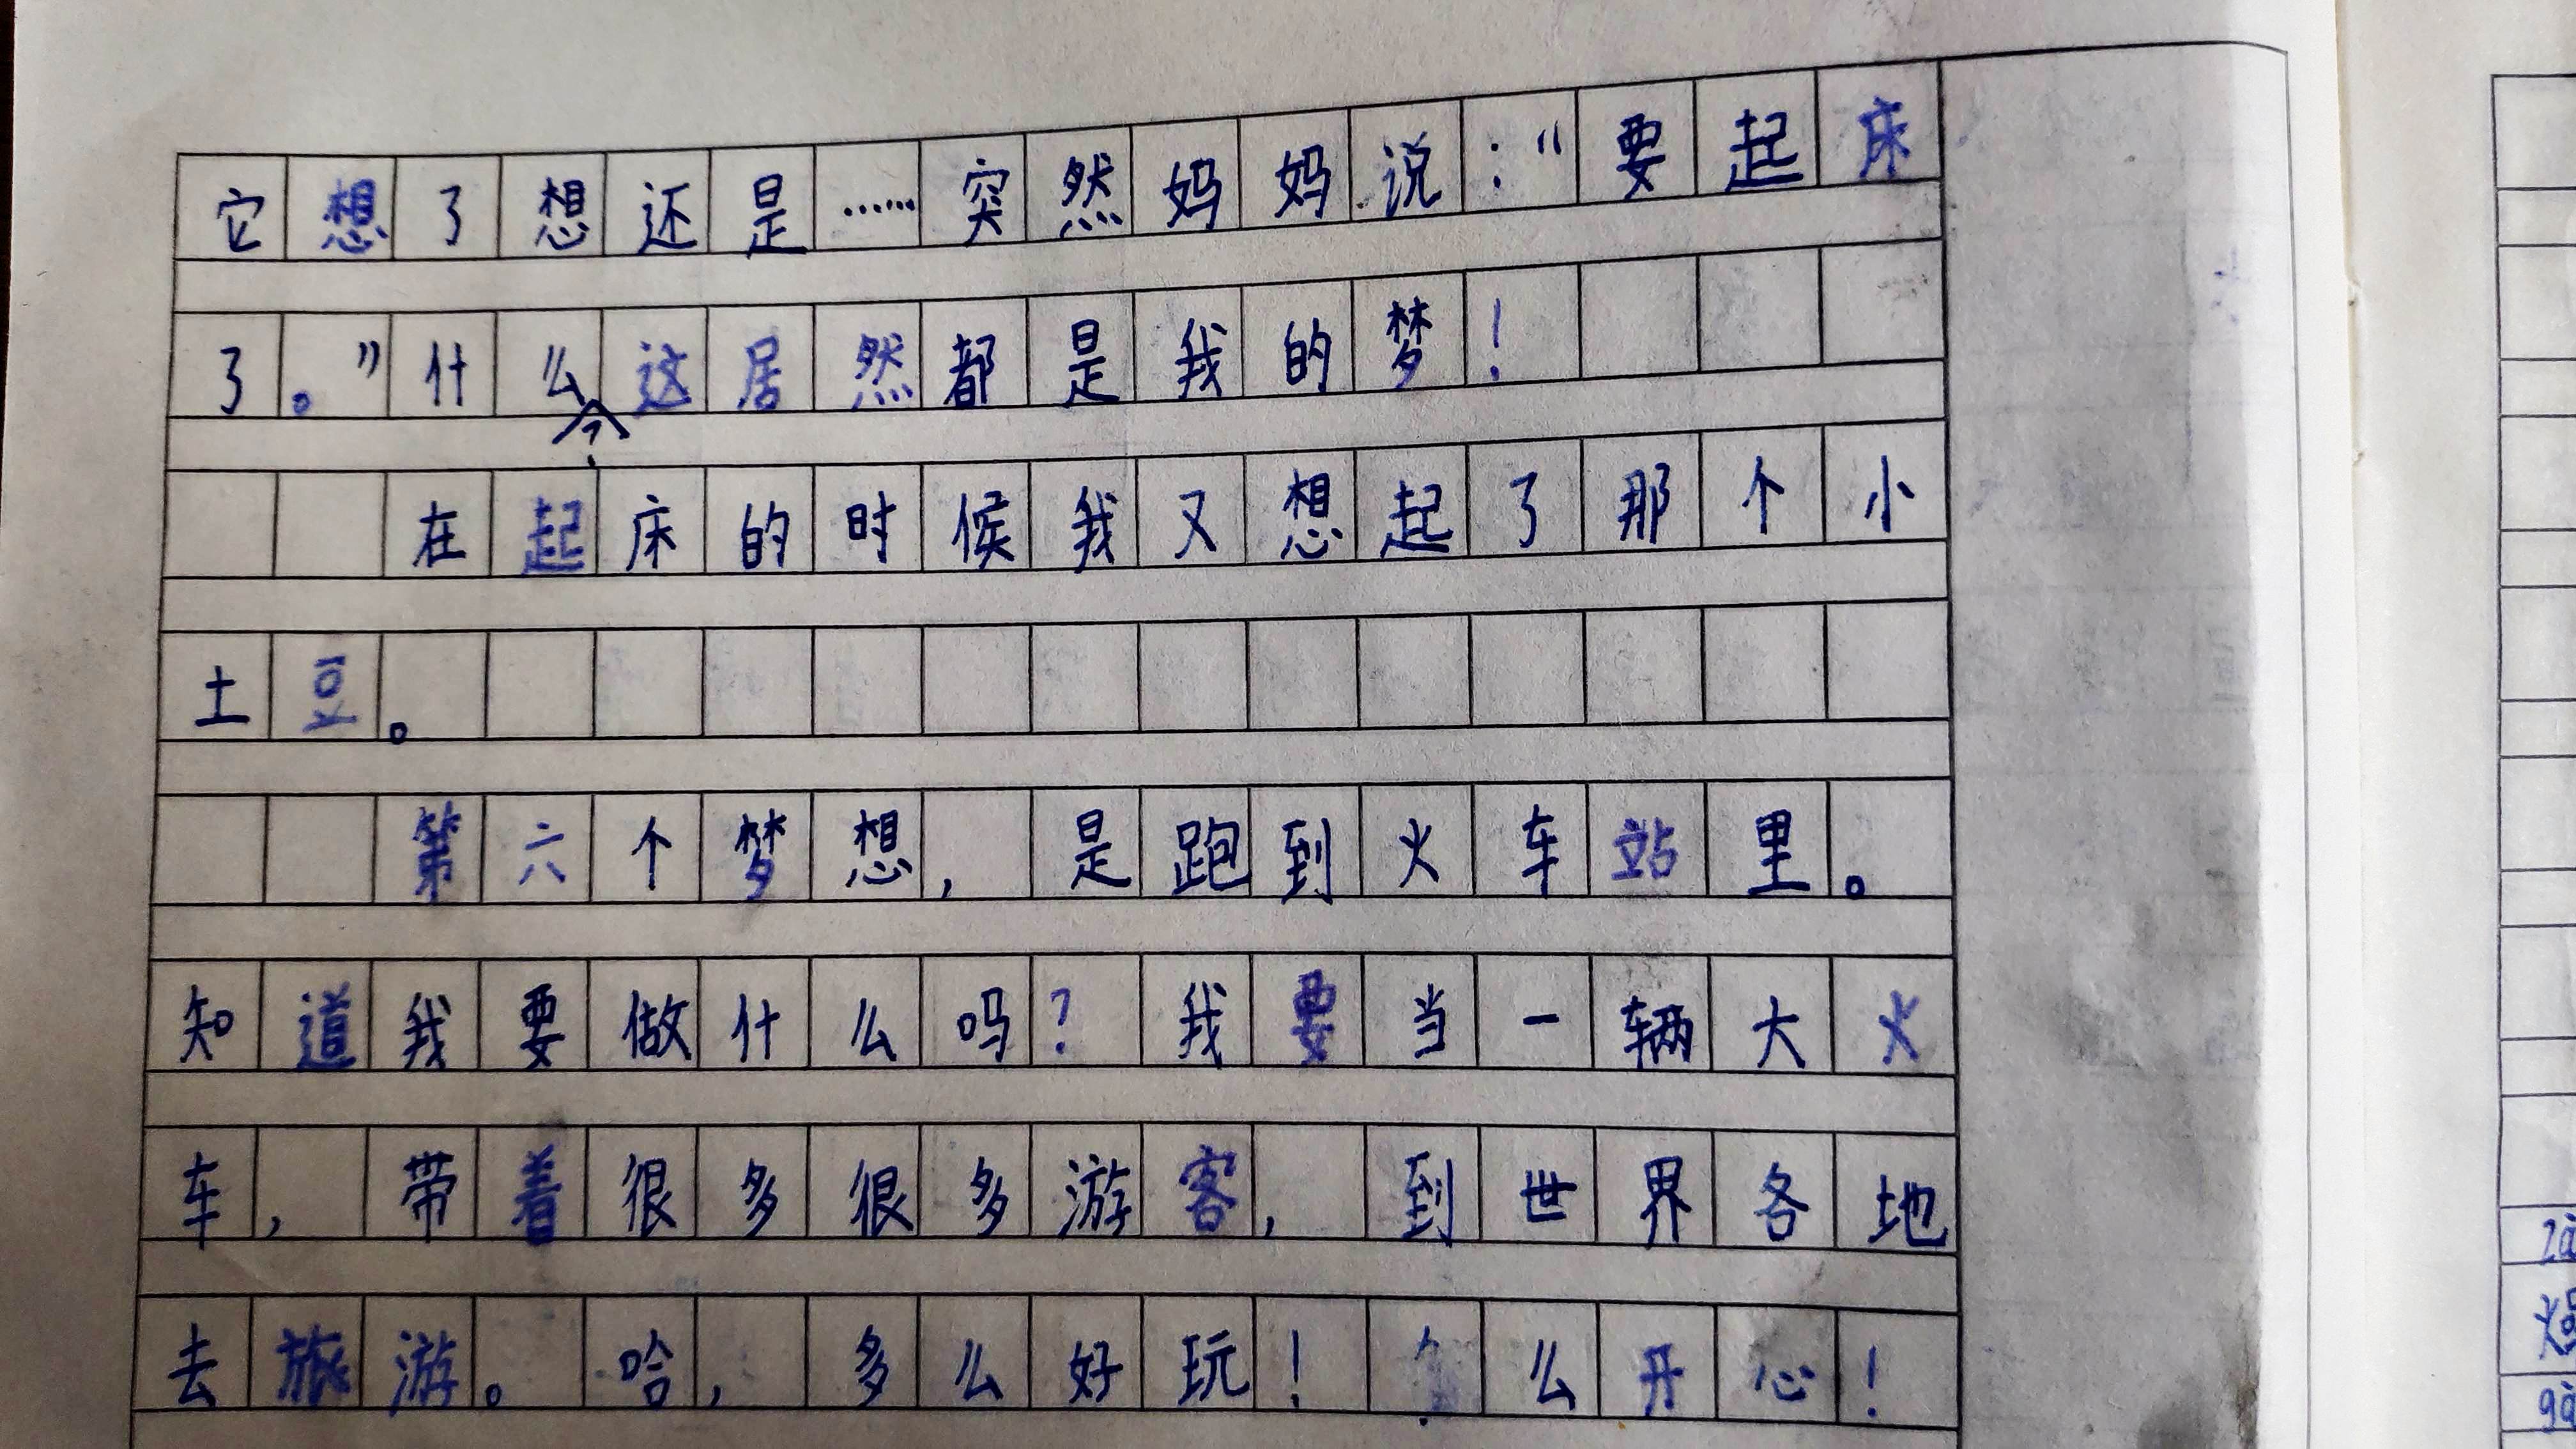 它想了想还是……突然妈妈说：“要起床
了。”什么？这居然都是我的梦！
在起床的时候我又想起了那个小
土豆。
第六个梦想，是跑到火车站里。
知道我要做什么吗？我要当一辆大火
车，带着很多很多游客，到世界各地
去旅游。哈，多么好玩！么开心！